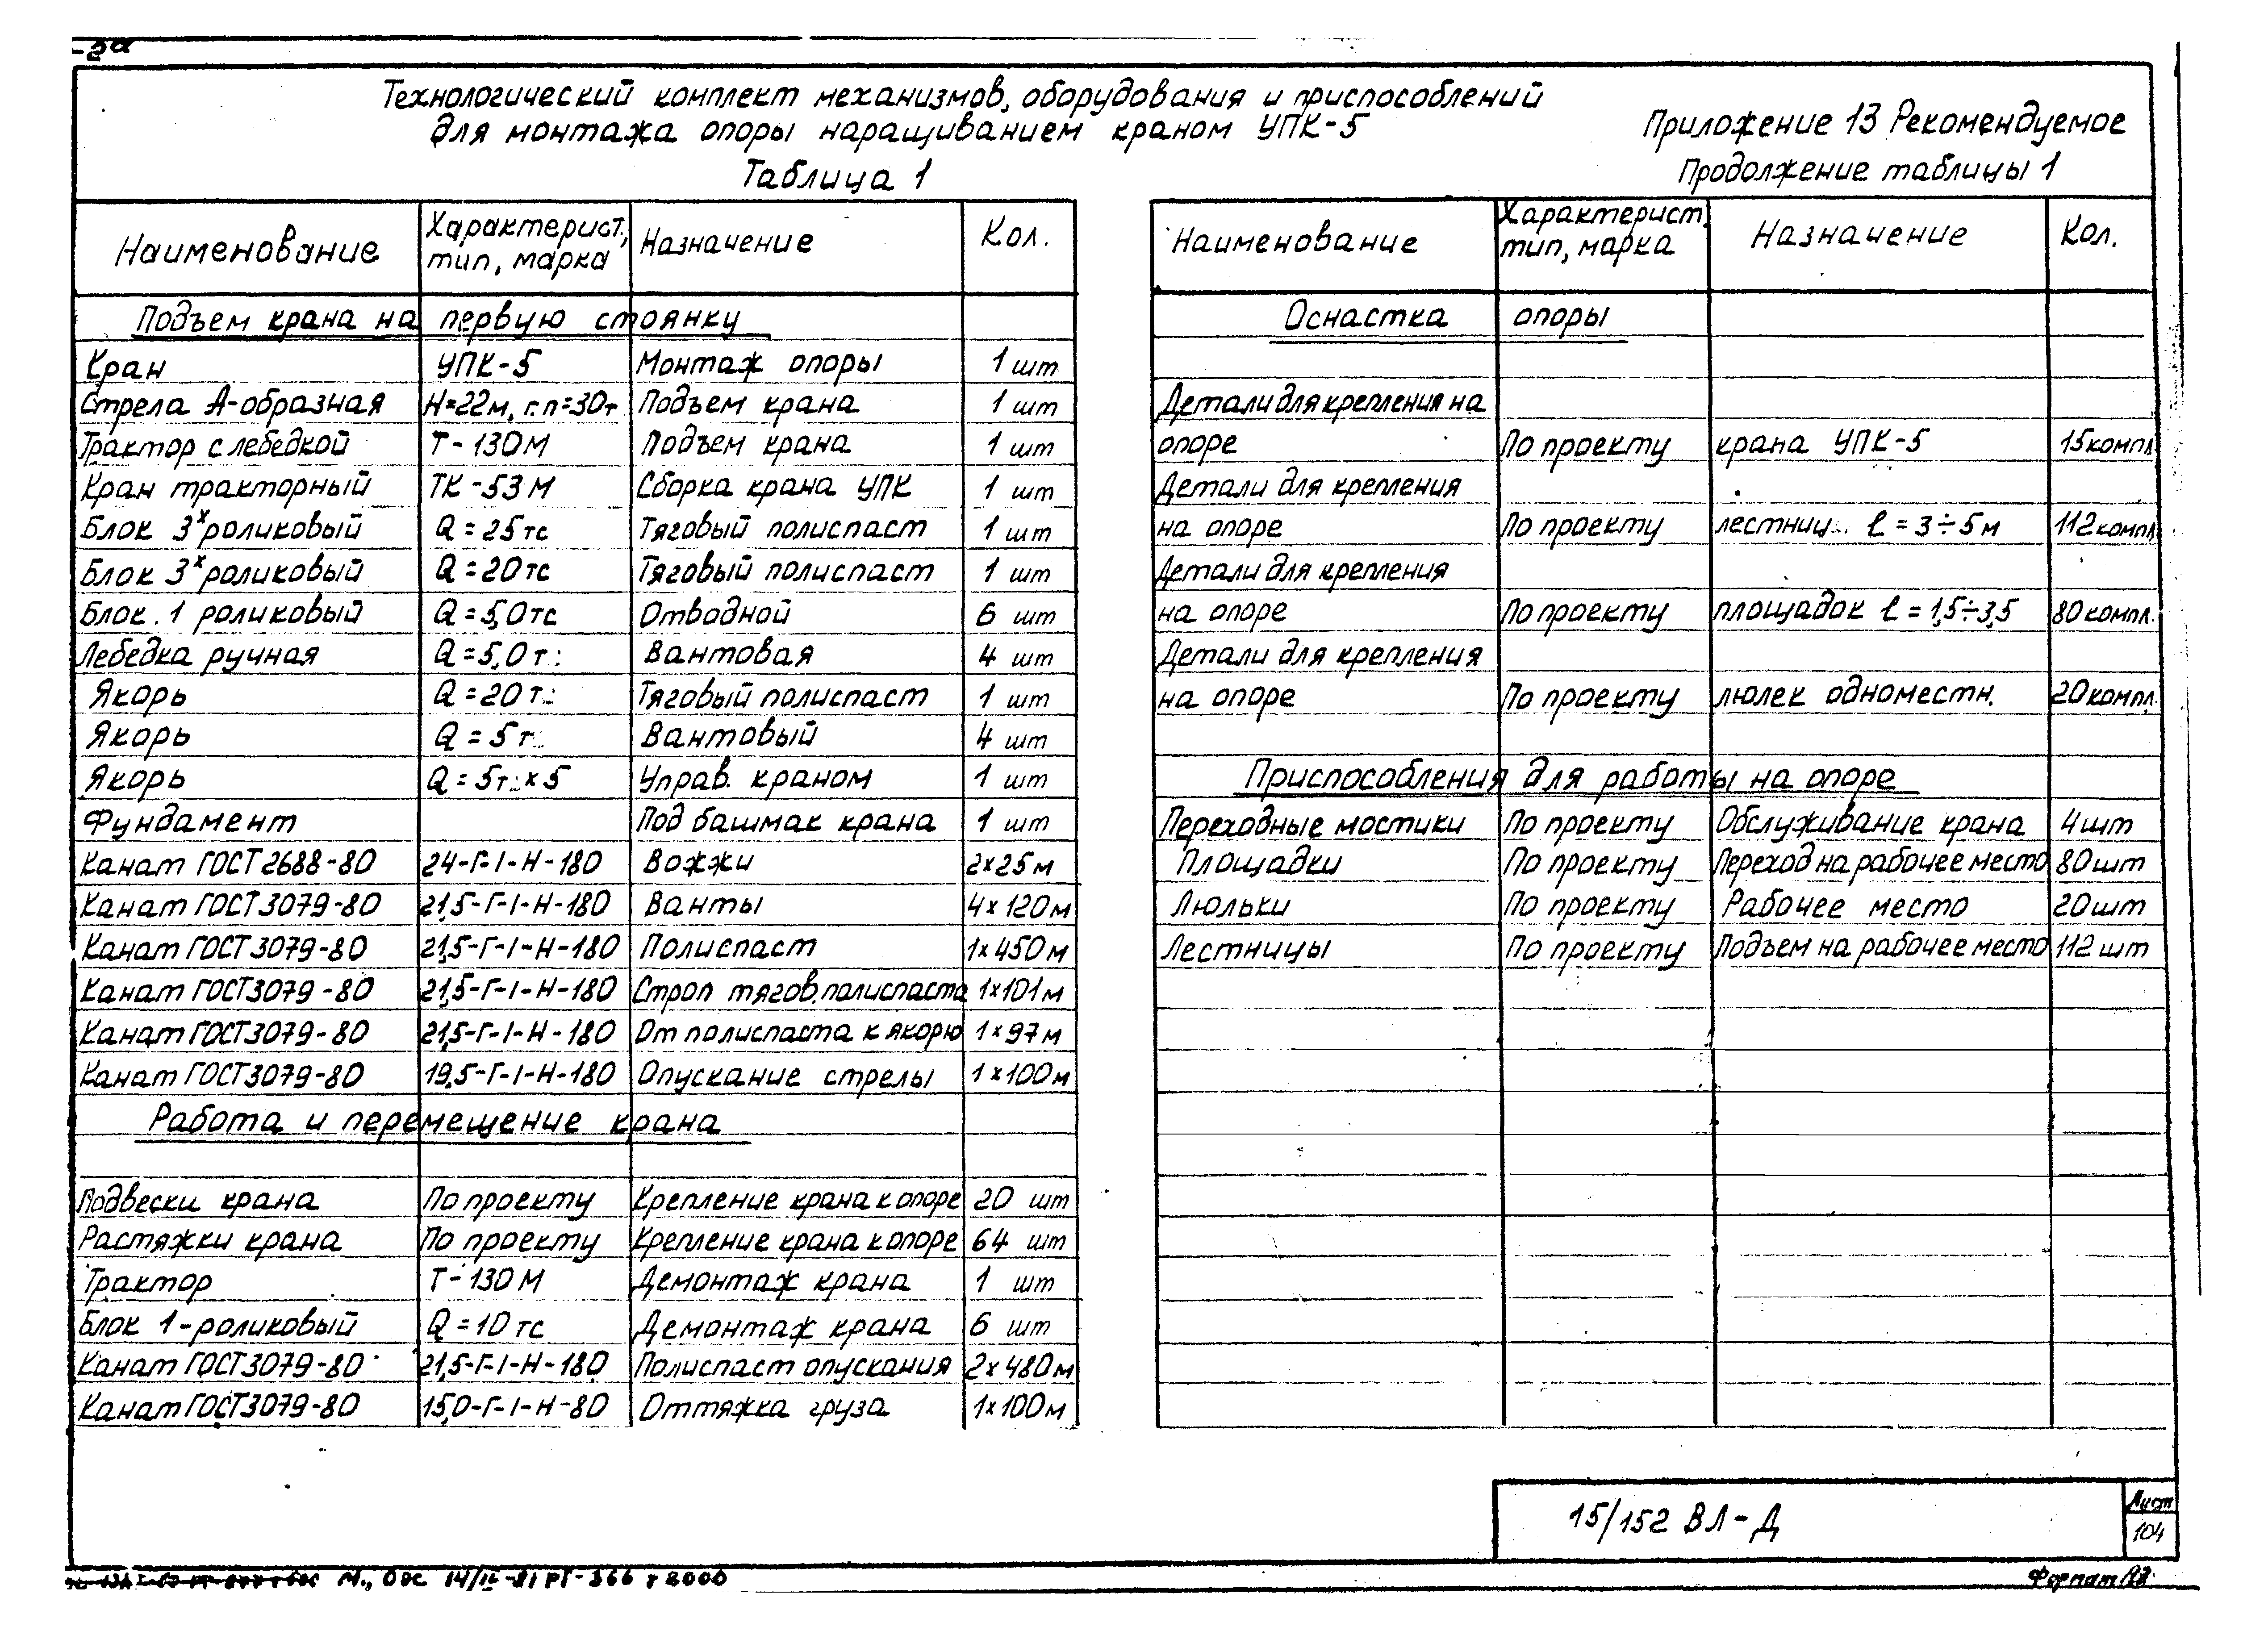 Технологический комплект механизмов, оборудования и приспособлений
для монтажа опоры наращиванием краном УПК-5
Приложение 13 Рекомендуемое
Таблица 1
Продолжение таблицы 1
Наименование Характерист., тип, марка Назначение Кол.
Подъем крана на первую стоянку
Кран УПК-5 Монтаж опоры 1 шт
Стрела А-образная Н=22м, г.п=30т Подъем крана 1 шт
Трактор с лебедкой Т-130М Подъем крана 1 шт
Кран тракторный ТК-53М Сборка крана УПК 1 шт
Блок 3х роликовый Q=25тс Тяговый полиспаст 1 шт
Блок 3х роликовый Q=20тс Тяговый полиспаст 1 шт
Блок 1 роликовый Q=5,0тс Отводной 6 шт
Лебедка ручная Q=5,0т Вантовая 4 шт
Якорь Q=20т Тяговый полиспаст 1 шт
Якорь Q=5т Вантовый 4 шт
Якорь Q=5т×5 Управ. краном 1 шт
Фундамент Под башмак крана 1 шт
Канат ГОСТ 2688-80 24-Г-I-Н-180 Вожжи 2×25м
Канат ГОСТ 3079-80 21,5-Г-I-Н-180 Ванты 4×120м
Канат ГОСТ 3079-80 21,5-Г-I-Н-180 Полиспаст 1×450м
Канат ГОСТ 3079-80 21,5-Г-I-Н-180 Строп тягов. полиспаста 1×101м
Канат ГОСТ 3079-80 21,5-Г-I-Н-180 От полиспаста к якорю 1×97м
Канат ГОСТ 3079-80 19,5-Г-I-Н-180 Опускание стрелы 1×100м
Работа и перемещение крана
Подвески крана По проекту Крепление крана к опоре 20 шт
Растяжки крана По проекту Крепление крана к опоре 64 шт
Трактор Т-130М Демонтаж крана 1 шт
Блок 1-роликовый Q=10тс Демонтаж крана 6 шт
Канат ГОСТ 3079-80 21,5-Г-I-Н-180 Полиспаст опускания 2×480м
Канат ГОСТ 3079-80 15,0-Г-I-Н-80 Оттяжка груза 1×100м
Наименование Характерист. тип, марка Назначение Кол.
Оснастка опоры
Детали для крепления на
опоре По проекту крана УПК-5 15компл.
Детали для крепления
на опоре По проекту лестниц. ℓ=3÷5м 112компл.
Детали для крепления
на опоре По проекту площадок ℓ=1,5÷3,5 80компл.
Детали для крепления
на опоре По проекту люлек одноместн. 20компл.
Приспособления для работы на опоре
Переходные мостики По проекту Обслуживание крана 4шт
Площадки По проекту Переход на рабочее место 80шт
Люльки По проекту Рабочее место 20шт
Лестницы По проекту Подъем на рабочее место 112шт
15/152 ВЛ-Д
Лист
104
Формат А3